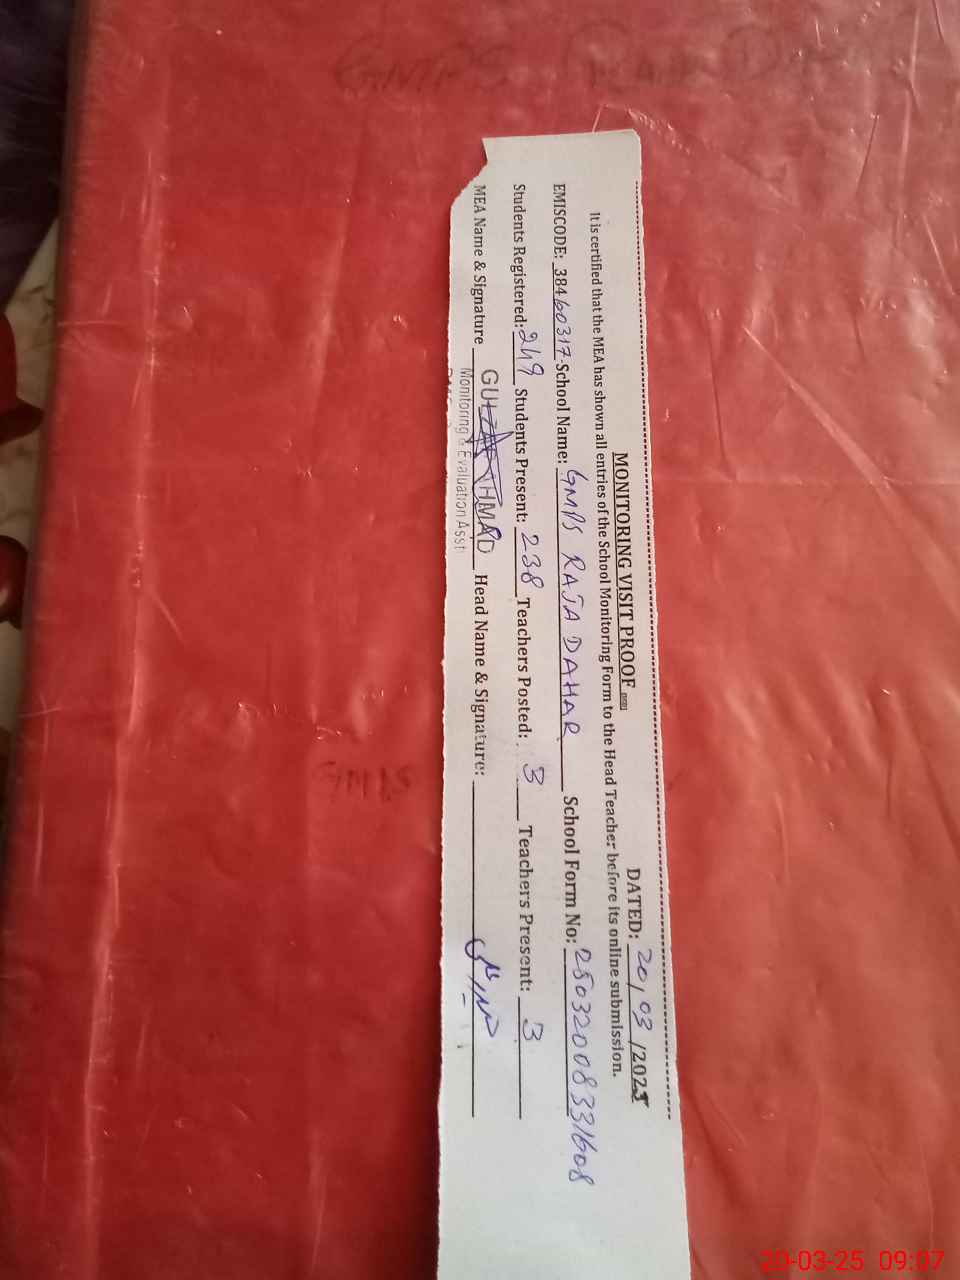 GMPS
MONITORING VISIT PROOF DATED: 20/03/2025
It is certified that the MEA has shown all entries of the School Monitoring Form to the Head Teacher before its online submission.
EMISCODE: 38460317 School Name: GMPS RAJA DAHAR School Form No: 25032008331608
Students Registered: 249 Students Present: 238 Teachers Posted: 3 Teachers Present: 3
MEA Name & Signature GULZAR AHMAD Head Name & Signature:
Monitoring & Evaluation Asst
GMPS
20-03-25 09:07